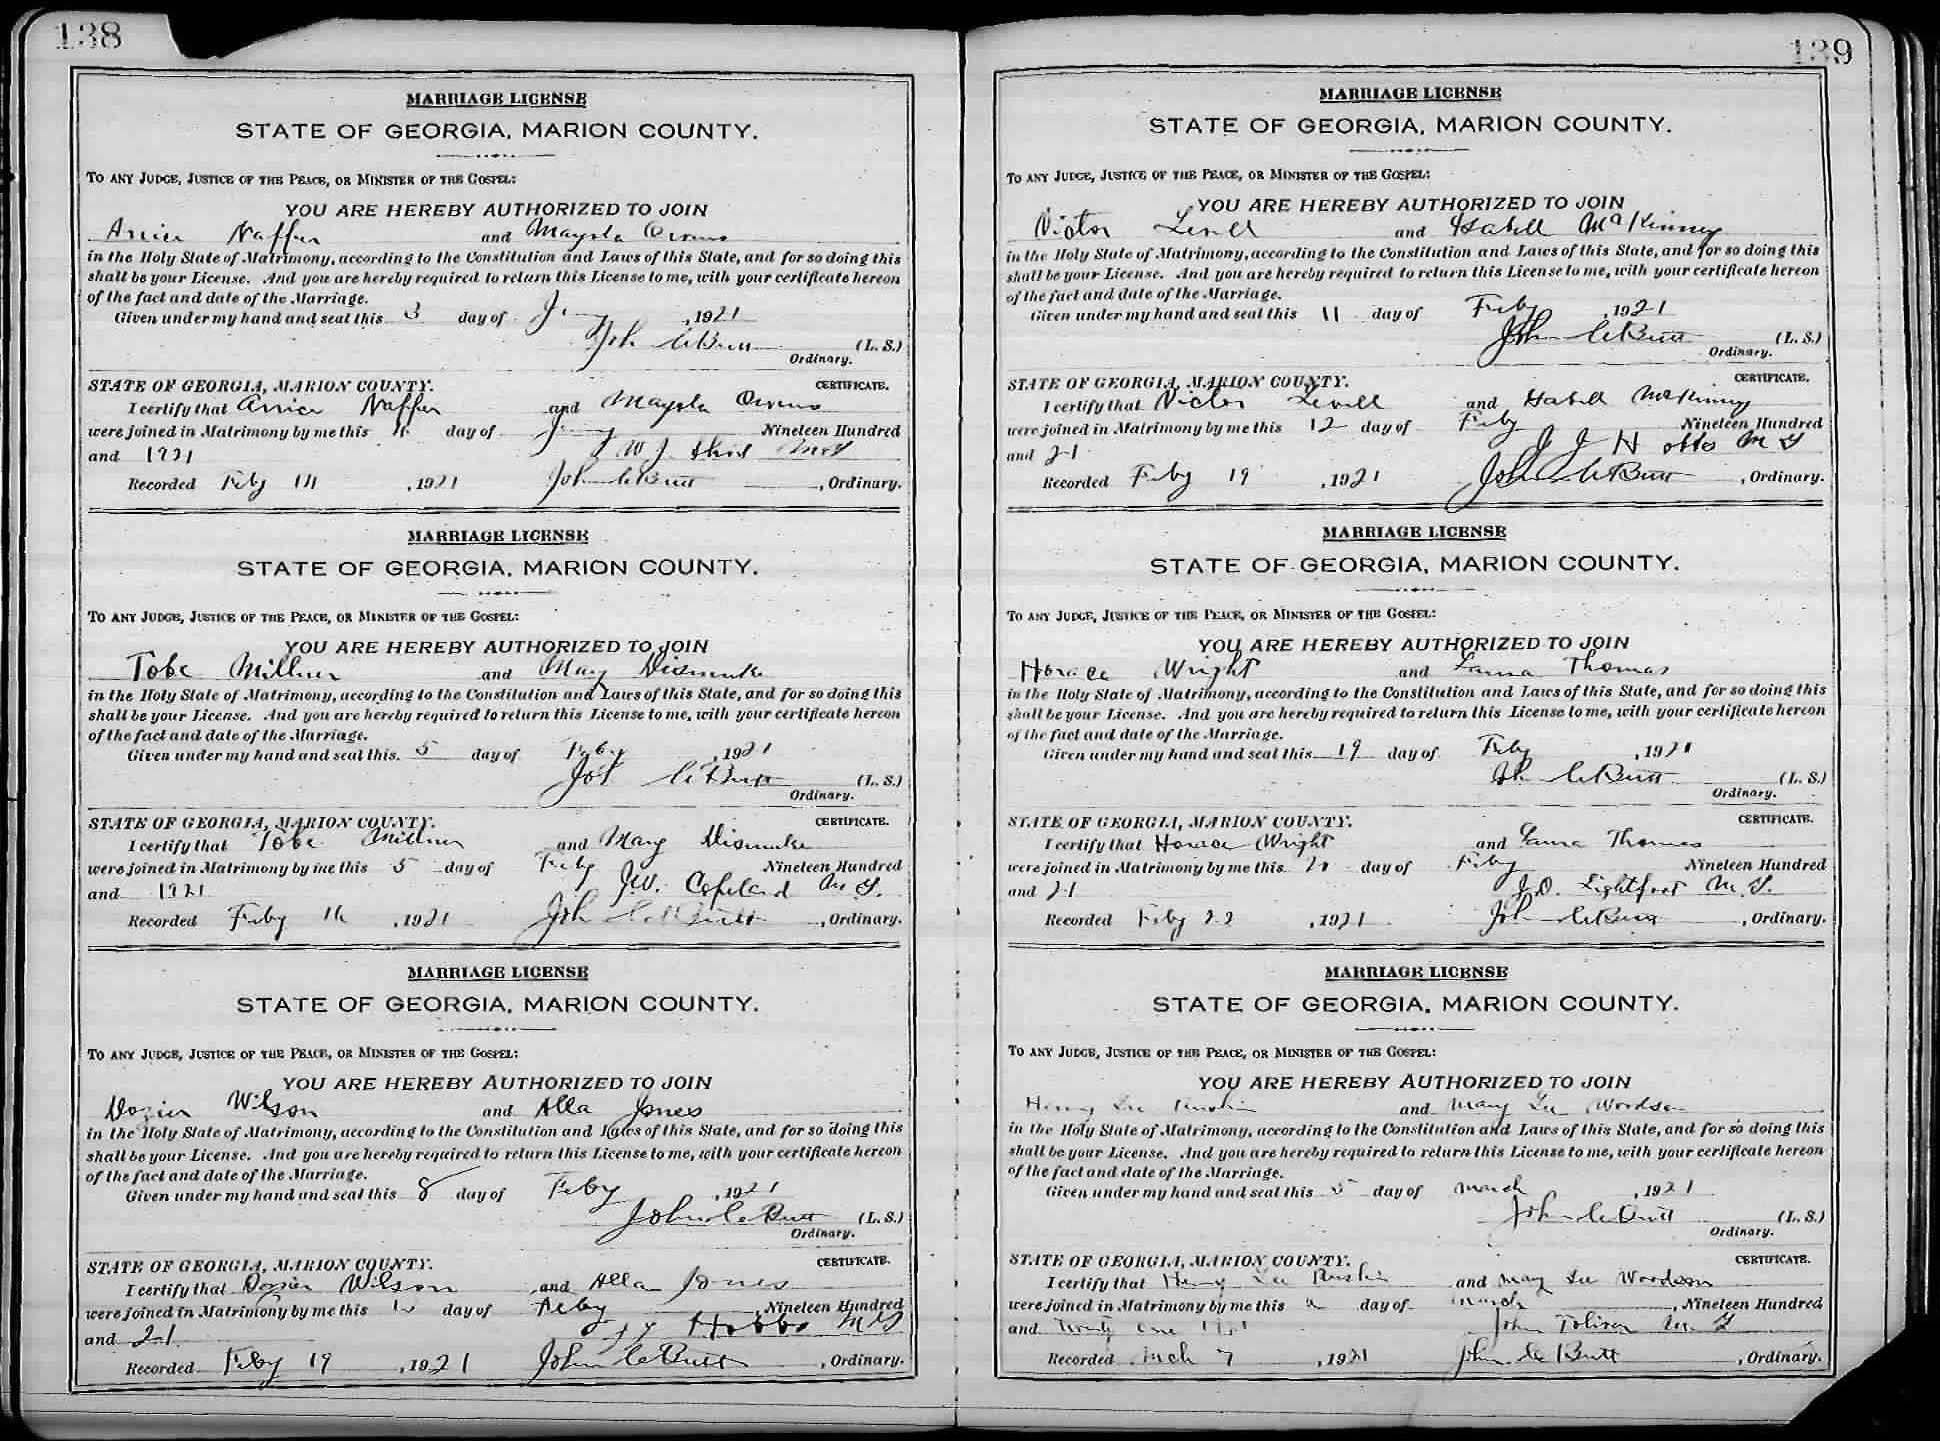 138
MARRIAGE LICENSE
STATE OF GEORGIA, MARION COUNTY.
TO ANY JUDGE, JUSTICE OF THE PEACE, OR MINISTER OF THE GOSPEL:
YOU ARE HEREBY AUTHORIZED TO JOIN
and Owens
in the Holy State of Matrimony, according to the Constitution and Laws of this State, and for so doing this
shall be your License. And you are hereby required to return this License to me, with your certificate hereon
of the fact and date of the Marriage.
Given under my hand and seal this 3 day of , 1921
John C Butt (L. S.)
Ordinary.
STATE OF GEORGIA, MARION COUNTY. CERTIFICATE.
I certify that and Owens
were joined in Matrimony by me this day of Nineteen Hundred
and 1921
Recorded Feby , 1921 John C Butt , Ordinary.
MARRIAGE LICENSE
STATE OF GEORGIA, MARION COUNTY.
TO ANY JUDGE, JUSTICE OF THE PEACE, OR MINISTER OF THE GOSPEL:
YOU ARE HEREBY AUTHORIZED TO JOIN
Tobe Millner and Mary Dismuke
in the Holy State of Matrimony, according to the Constitution and Laws of this State, and for so doing this
shall be your License. And you are hereby required to return this License to me, with your certificate hereon
of the fact and date of the Marriage.
Given under my hand and seal this 5 day of Feby , 1921
C Butt (L. S.)
Ordinary.
STATE OF GEORGIA, MARION COUNTY. CERTIFICATE.
I certify that Tobe Millner and Mary Dismuke
were joined in Matrimony by me this 5 day of Feby Nineteen Hundred
and 1921 J.W. Copeland M G.
Recorded Feby , 1921 John C Butt , Ordinary.
MARRIAGE LICENSE
STATE OF GEORGIA, MARION COUNTY.
TO ANY JUDGE, JUSTICE OF THE PEACE, OR MINISTER OF THE GOSPEL:
YOU ARE HEREBY AUTHORIZED TO JOIN
Dozier Wilson and Alla Jones
in the Holy State of Matrimony, according to the Constitution and Laws of this State, and for so doing this
shall be your License. And you are hereby required to return this License to me, with your certificate hereon
of the fact and date of the Marriage.
Given under my hand and seal this 8 day of Feby , 1921
John C Butt (L. S.)
Ordinary.
STATE OF GEORGIA, MARION COUNTY. CERTIFICATE.
I certify that Dozier Wilson and Alla Jones
were joined in Matrimony by me this day of Feby , Nineteen Hundred
and 21 Hobbs M G
Recorded Feby 19 , 1921 John C Butt , Ordinary.
139
MARRIAGE LICENSE
STATE OF GEORGIA, MARION COUNTY.
TO ANY JUDGE, JUSTICE OF THE PEACE, OR MINISTER OF THE GOSPEL:
YOU ARE HEREBY AUTHORIZED TO JOIN
Victor and Isabell McKinney
in the Holy State of Matrimony, according to the Constitution and Laws of this State, and for so doing this
shall be your License. And you are hereby required to return this License to me, with your certificate hereon
of the fact and date of the Marriage.
Given under my hand and seal this 11 day of Feby , 1921
John C Butt (L. S.)
Ordinary.
STATE OF GEORGIA, MARION COUNTY. CERTIFICATE.
I certify that Victor and Isabell McKinney
were joined in Matrimony by me this 12 day of Feby Nineteen Hundred
and 21 M G
Recorded Feby 19 , 1921 John C Butt , Ordinary.
MARRIAGE LICENSE
STATE OF GEORGIA, MARION COUNTY.
TO ANY JUDGE, JUSTICE OF THE PEACE, OR MINISTER OF THE GOSPEL:
YOU ARE HEREBY AUTHORIZED TO JOIN
Horace Wright and Thomas
in the Holy State of Matrimony, according to the Constitution and Laws of this State, and for so doing this
shall be your License. And you are hereby required to return this License to me, with your certificate hereon
of the fact and date of the Marriage.
Given under my hand and seal this 19 day of Feby , 1921
Jhn C Butt (L. S.)
Ordinary.
STATE OF GEORGIA, MARION COUNTY. CERTIFICATE.
I certify that Horace Wright and Thomas
were joined in Matrimony by me this 20 day of Feby Nineteen Hundred
and 21 J.D. Lightfoot M. G.
Recorded Feby 22 , 1921 John C Butt , Ordinary.
MARRIAGE LICENSE
STATE OF GEORGIA, MARION COUNTY.
TO ANY JUDGE, JUSTICE OF THE PEACE, OR MINISTER OF THE GOSPEL:
YOU ARE HEREBY AUTHORIZED TO JOIN
Henry Lee and Mary Lee Woodson
in the Holy State of Matrimony, according to the Constitution and Laws of this State, and for so doing this
shall be your License. And you are hereby required to return this License to me, with your certificate hereon
of the fact and date of the Marriage.
Given under my hand and seal this 5 day of March , 1921
John C Butt (L. S.)
Ordinary.
STATE OF GEORGIA, MARION COUNTY. CERTIFICATE.
I certify that Henry Lee and Mary Lee Woodson
were joined in Matrimony by me this day of March , Nineteen Hundred
and Twenty one John Toliver M. G
Recorded Mch 7 , 1921 John C Butt , Ordinary.